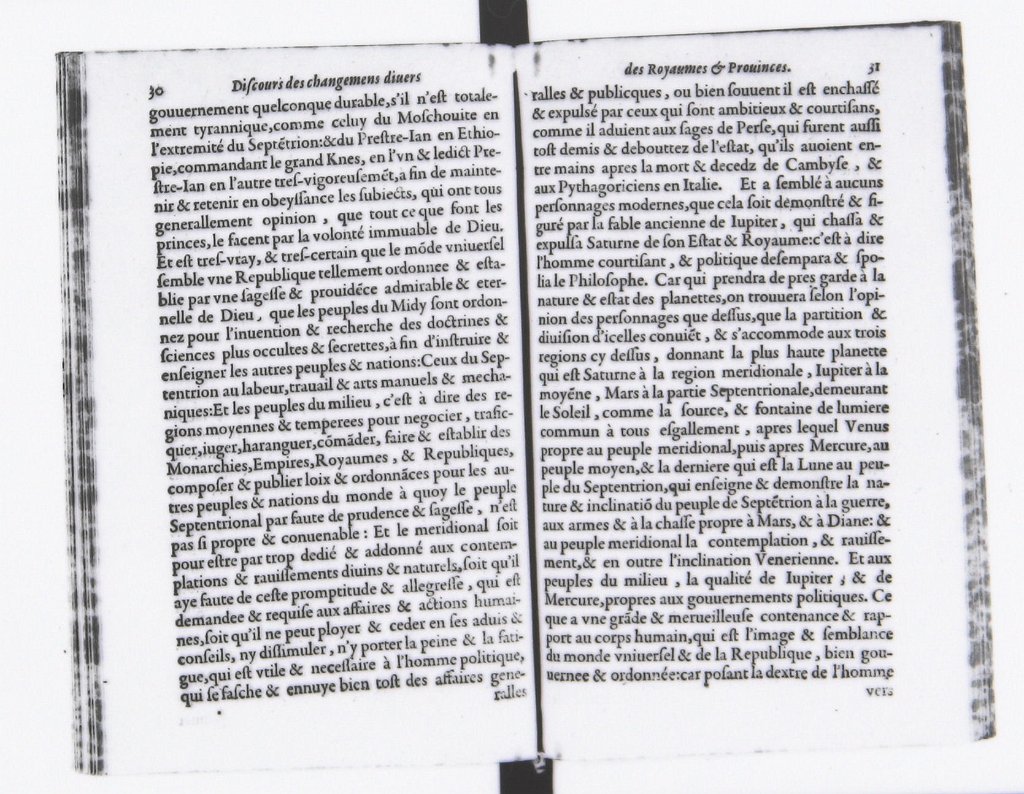 30 Discours des changemens diuers
gouuernement quelconque durable,s'il n'est totale-
ment tyrannique,comme celuy du Moschouite en
l'extremité du Septẽtrion:&du Prestre-Ian en Ethio-
pie,commandant le grand Knes, en l'vn & ledict Pre-
stre-Ian en l'autre tres-vigoreusemẽt,a fin de mainte-
nir & retenir en obeyssance les subiects, qui ont tous
generallement opinion , que tout ce que font les
princes,le facent par la volonté immuable de Dieu.
Et est tres-vray, & tres-certain que le mõde vniuersel
semble vne Republique tellement ordonnee & esta-
blie par vne sagesse & prouidẽce admirable & eter-
nelle de Dieu , que les peuples du Midy sont ordon-
nez pour l'inuention & recherche des doctrines &
sciences plus occultes & secrettes,à fin d'instruire &
enseigner les autres peuples & nations:Ceux du Sep-
tentrion au labeur,trauail & arts manuels & mecha-
niques:Et les peuples du milieu , c'est à dire des re-
gions moyennes & temperees pour negocier , trafic-
quier,iuger,haranguer,cõmãder, faire & establir des
Monarchies,Empires,Royaumes , & Republiques,
composer & publier loix & ordonnãces pour les au-
tres peuples & nations du monde à quoy le peuple
Septentrional par faute de prudence & sagesse , n'est
pas si propre & conuenable : Et le meridional soit
pour estre par trop dedié & addonné aux contem-
plations & rauissements diuins & naturels,soit qu'il
aye faute de ceste promptitude & allegresse , qui est
demandee & requise aux affaires & actions humai-
nes,soit qu'il ne peut ployer & ceder en ses aduis &
conseils, ny dissimuler , n'y porter la peine & la fati-
gue,qui est vtile & necessaire à l'homme politique,
qui se fasche & ennuye bien tost des affaires gene-
ralles
des Royaumes & Prouinces. 31
ralles & publicques , ou bien souuent il est enchassé
& expulsé par ceux qui sont ambitieux & courtisans,
comme il aduient aux sages de Perse,qui furent aussi
tost demis & debouttez de l'estat, qu'ils auoient en-
tre mains apres la mort & decedz de Cambyse , &
aux Pythagoriciens en Italie. Et a semblé à aucuns
personnages modernes,que cela soit demonstré & fi-
guré par la fable ancienne de Iupiter , qui chassa &
expulsa Saturne de son Estat & Royaume:c'est à dire
l'homme courtisant , & politique desempara & spo-
lia le Philosophe. Car qui prendra de pres garde à la
nature & estat des planettes,on trouuera selon l'opi-
nion des personnages que dessus,que la partition &
diuision d'icelles conuiẽt , & s'accommode aux trois
regions cy dessus , donnant la plus haute planette
qui est Saturne à la region meridionale , Iupiter à la
moyẽne , Mars à la partie Septentrionale,demeurant
le Soleil , comme la source, & fontaine de lumiere
commun à tous esgallement , apres lequel Venus
propre au peuple meridional,puis apres Mercure,au
peuple moyen,& la derniere qui est la Lune au peu-
ple du Septentrion,qui enseigne & demonstre la na-
ture & inclinatiõ du peuple de Septẽtrion à la guerre,
aux armes & à la chasse propre à Mars, & à Diane: &
au peuple meridional la contemplation , & rauisse-
ment,& en outre l'inclination Venerienne. Et aux
peuples du milieu , la qualité de Iupiter ; & de
Mercure,propres aux gouuernements politiques. Ce
que a vne grãde & merueilleuse contenance & rap-
port au corps humain,qui est l'image & semblance
du monde vniuersel & de la Republique , bien gou-
uernee & ordonnée:car posant la dextre de l'homme
vers